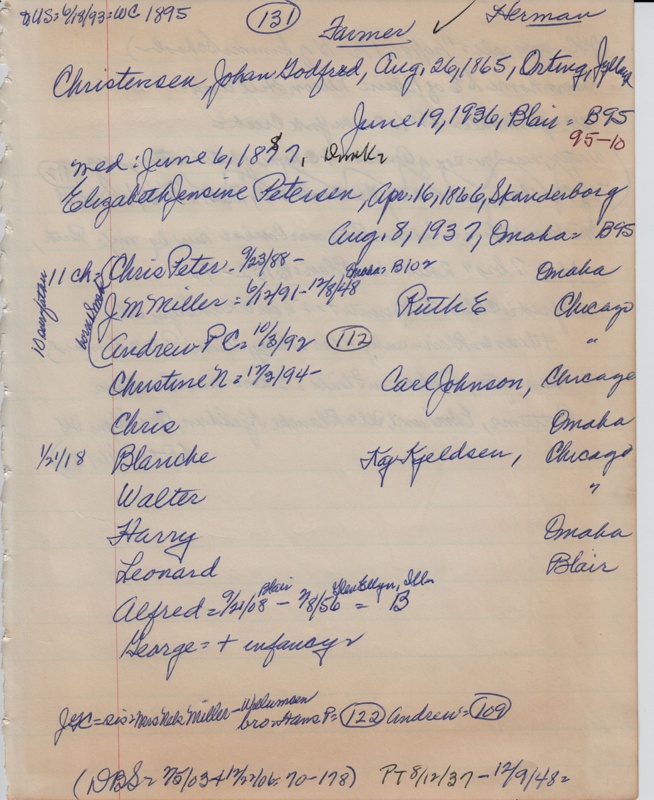 to US = 6/18/93 = WC 1895 (131) Farmer ✓ Herman
Christensen Johan Godfred, Aug. 26, 1865, Orting, Jylland
June 19, 1936, Blair = B95
95-10
med: June 6, 1887, Dmk
Elizabeth Jensine Petersen, Apr. 16, 1866, Skanderborg
Aug. 8, 1937, Omaha = B95
11 ch = Chris Peter - 9/23/88 - Omaha
J M Miller = 6/12/91 - 12/8/48 Omaha = B102 Ruth E Chicago
Andrew P C = 10/3/92 (112) "
Christine N = 12/3/94 - Carl Johnson, Chicago
Chris Omaha
1/21/18 Blanche Kaj Kjeldsen, Chicago
Walter "
Harry Omaha
Leonard Blair
Alfred = 9/21/08 Blair - 7/8/56 Glen Ellyn, Ill = B
George = + infancy
JGC = sis = Mrs Nels Miller - bro = Hans P = (122) Andrew = (109)
(DBS = 2/5/03 + 12/22/06: 70-178) PT 8/12/37 - 12/9/48 =